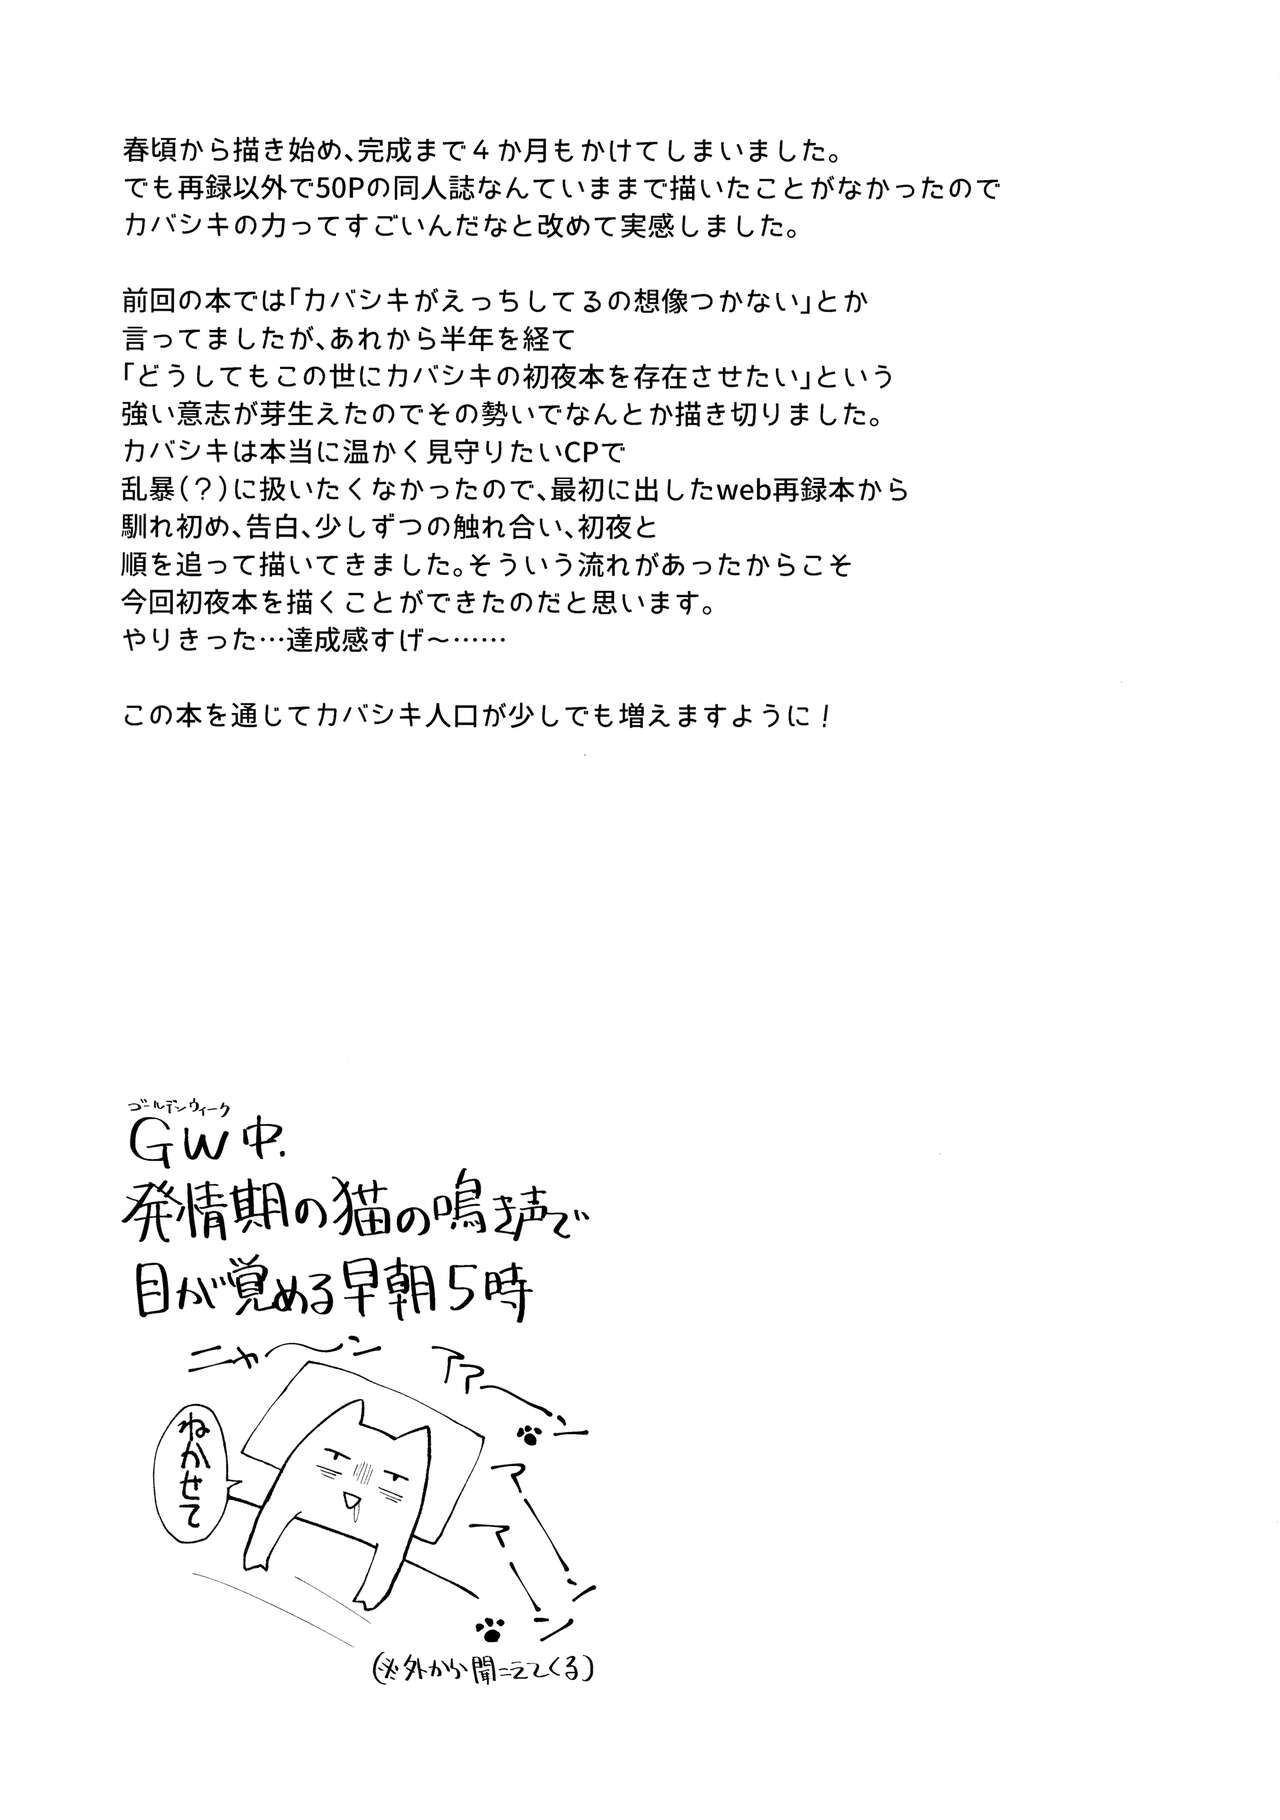 春頃から描き始め、完成まで４か月もかけてしまいました。
でも再録以外で50Pの同人誌なんていままで描いたことがなかったので
カバシキの力ってすごいんだなと改めて実感しました。
前回の本では「カバシキがえっちしてるの想像つかない」とか
言ってましたが、あれから半年を経て
「どうしてもこの世にカバシキの初夜本を存在させたい」という
強い意志が芽生えたのでその勢いでなんとか描き切りました。
カバシキは本当に温かく見守りたいCPで
乱暴（？）に扱いたくなかったので、最初に出したweb再録本から
馴れ初め、告白、少しずつの触れ合い、初夜と
順を追って描いてきました。そういう流れがあったからこそ
今回初夜本を描くことができたのだと思います。
やりきった…達成感すげ～……
この本を通じてカバシキ人口が少しでも増えますように！
ゴールデンウィーク
GW中、
発情期の猫の鳴き声で
目が覚める早朝5時
ニャ〜ン
アアーン
ねかせて
マーン
マーン
(※外から聞こえてくる)